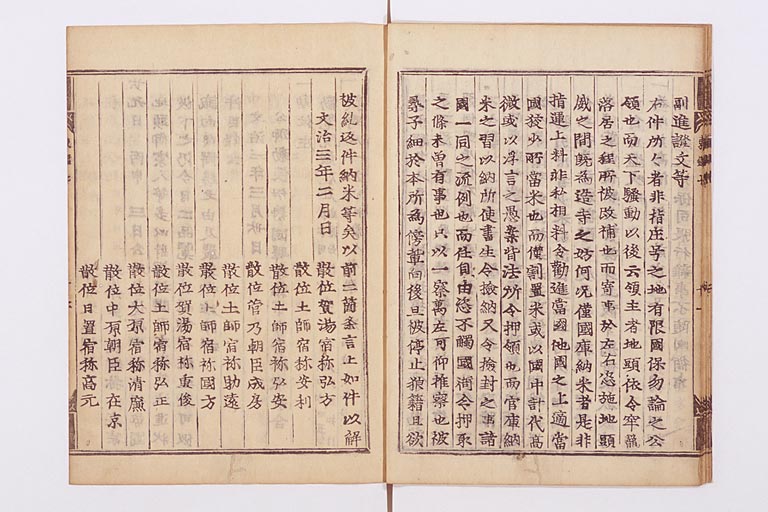 副進證文等
右件所々者非指庄号之地有限國保勿論之公
領也而天下騒動以後云領主者地頭依令牢籠
落居之程所被改補也而寄事於左右恣施地頭
威之間既為造寺之妨何况僅國庫納米者是非
指運上料非私相料令勸進當國他國之上適當
國狭少所當米也而僅割置米或以國中計代高
微或以浮言之愚案皆注所令押領也而官庫納
米之習以納所使書生令撿納又令撿封之事諸
國一同之流例也而任自由恣不觸國衙令押取
之條未曾有事也只以一察萬左可仰推察也被
尋子細於本所為傍輩向後且被停止狼籍且欲
被糺返件納米等矣以前二箇条言上如件以解
文治三年二月日
散位賀湯宿祢弘方
散位土師宿祢安利
散位土師宿祢弘安
散位菅乃朝臣成房
散位土師宿祢助遠
散位土師宿祢國方
散位賀湯宿祢重俊
散位土師宿祢弘正
散位大原宿祢清廉
散位中原朝臣在京
散位日置宿祢高元